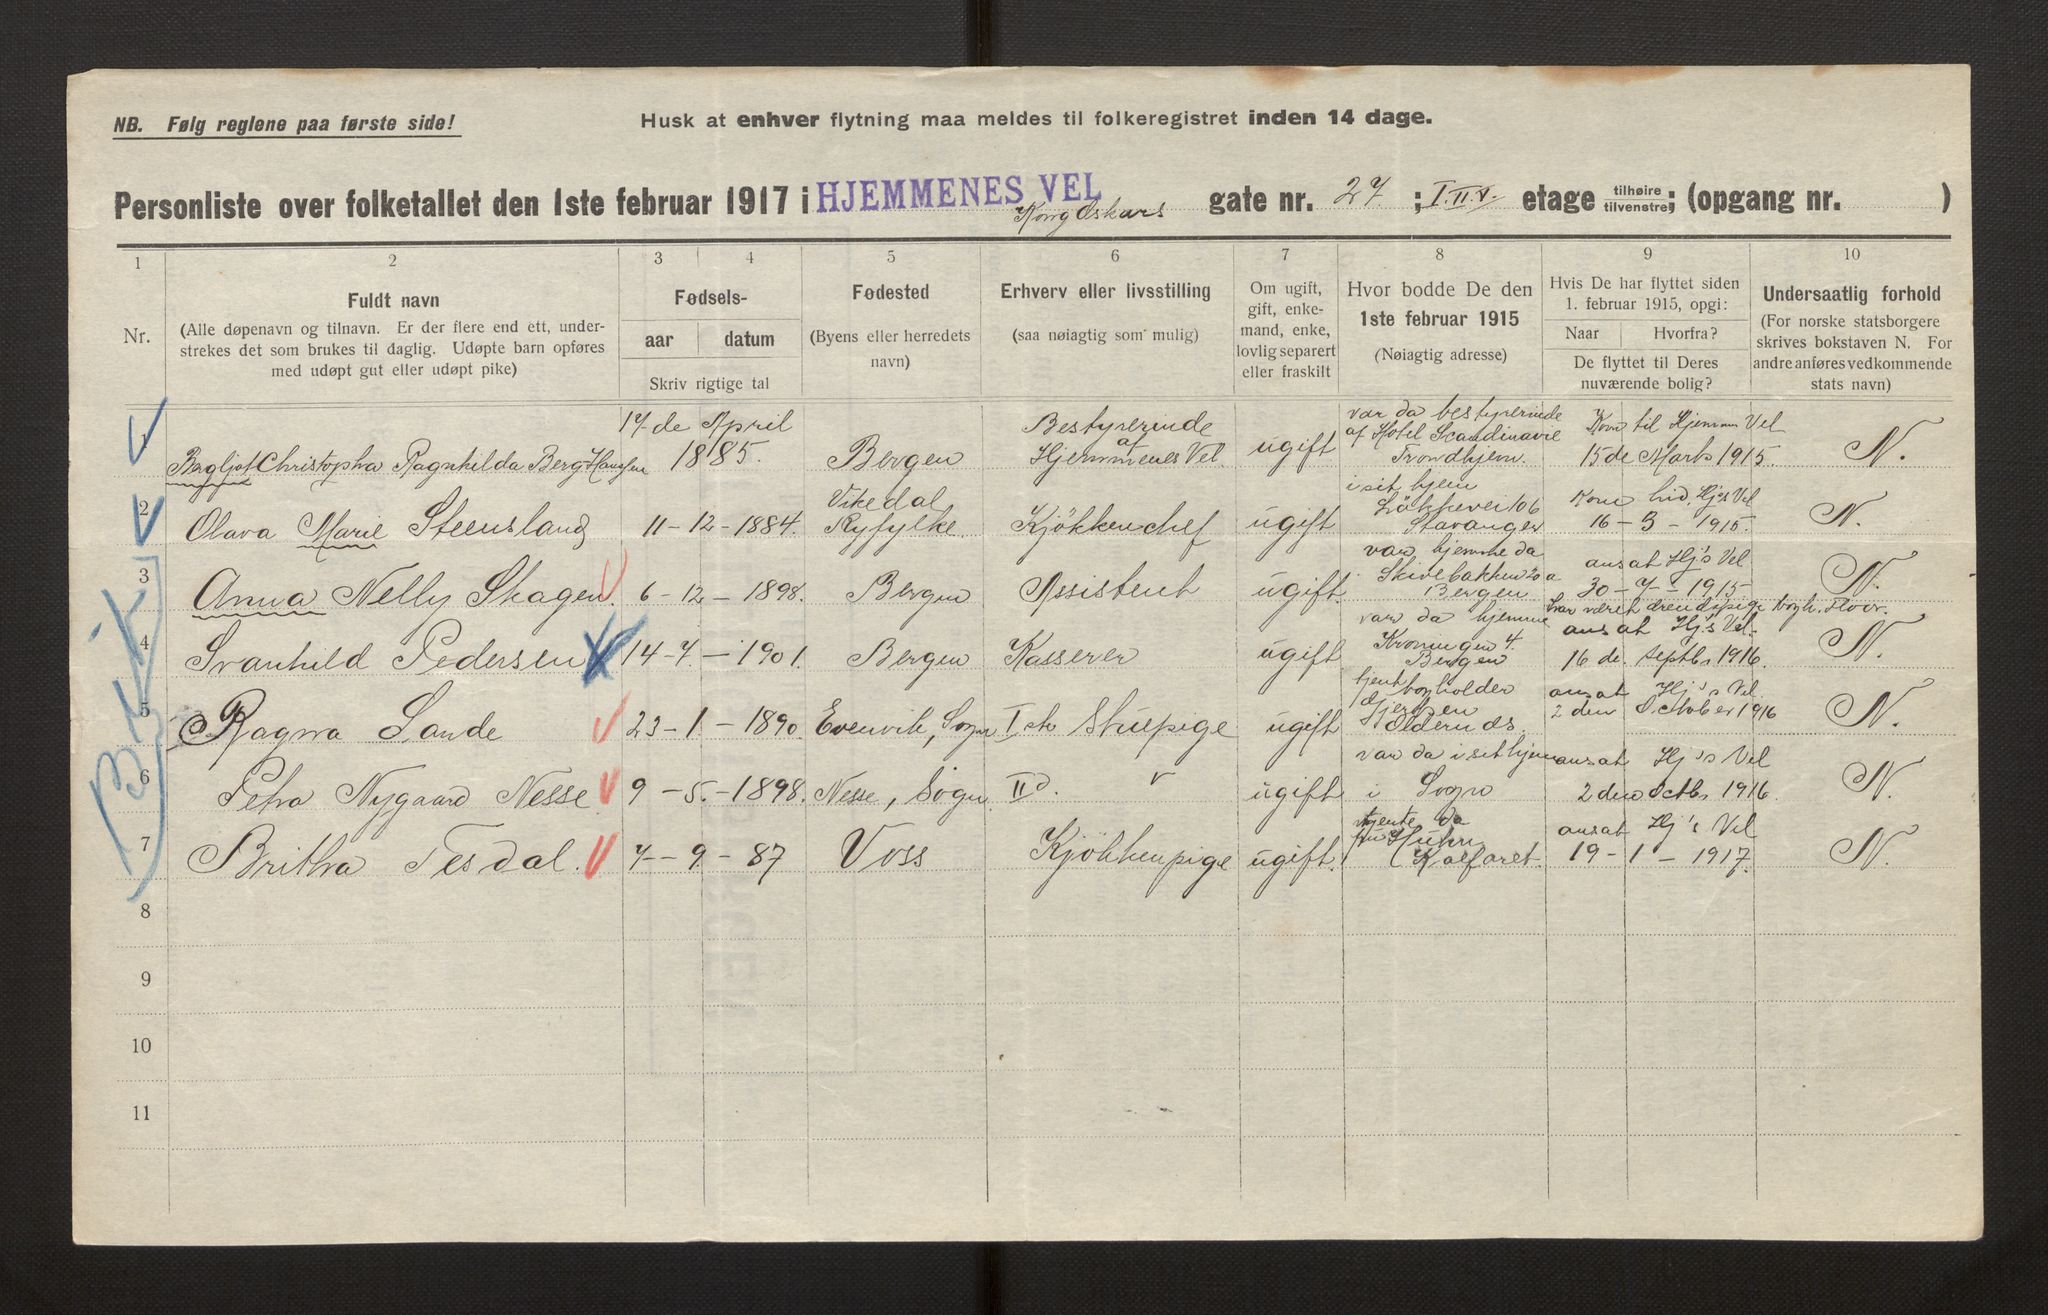 NB. Følg reglene paa første side!
Husk at enhver flytning maa meldes til folkeregistret inden 14 dage.
Personliste over folketallet den 1ste februar 1917 i HJEMMENES VEL Kong Oskars gate nr. 27. ; I. II. V. etage tilhøire tilvenstre; (opgang nr. )
1 2 3 4 5 6 7 8 9 10
Nr.
Fuldt navn
(Alle døpenavn og tilnavn. Er der flere end ett, under-
strekes det som brukes til daglig. Udøpte barn opføres
med udøpt gut eller udøpt pike)
Fødsels-
aar datum
Skriv rigtige tal
Fødested
(Byens eller herredets
navn)
Erhverv eller livsstilling
(saa nøiagtig som mulig)
Om ugift,
gift, enke-
mand, enke,
lovlig separert
eller fraskilt
Hvor bodde De den
1ste februar 1915
(Nøiagtig adresse)
Hvis De har flyttet siden
1. februar 1915, opgi:
Naar Hvorfra?
De flyttet til Deres
nuværende bolig?
Undersaatlig forhold
(For norske statsborgere
skrives bokstaven N. For
andre anføres vedkommende
stats navn)
17-de April Bestyrerinde var da bestyrerinde
1 Bergljot Christopha Ragnhilda Berg Hansen 1885. Bergen af Hjemmenes Vel. ugift af Hotel Scandinavie Kom til Hjemmenes Vel N.
Trondhjem. 15 de Marts 1915.
Vikedal i sit hjem Kom hid. Hj's Vel
2 Olava Marie Steensland 11-12-1884. Ryfylke. Kjökkenchef ugift Lökkevei 106 16-3-1915. N.
Stavanger
var hjemme da ansat Hj's Vel
3 Anna Nelly Skagen 6-12-1898. Bergen Assistent ugift. Skivebakken 20a 30-7-1915 N.
Bergen
var da hjemme ansat Hj's Vel.
4 Svanhild Pedersen 14-7-1901. Bergen Kasserer ugift Kroningen 4. 16 de. Septbr 1916. N.
Bergen
ansat Hj's Vel.
5 Ragna Sande 23-1-1890. Evenvik, Sogn I ste Stuepige ugift 2 den October 1916 N.
var da i sit hjem ansat Hj's Vel
6 Petra Nygaard Nesse 9-5.-1898. Nesse, Sogn. II d. " ugift i Sogn 2 den Octbr 1916. N.
tjente da ansat Hj's Vel
7 Britha Tesdal. 7-9-87 Voss Kjökkenpige ugift. Kalfaret. 19-1-1917. N.
8
9
10
11